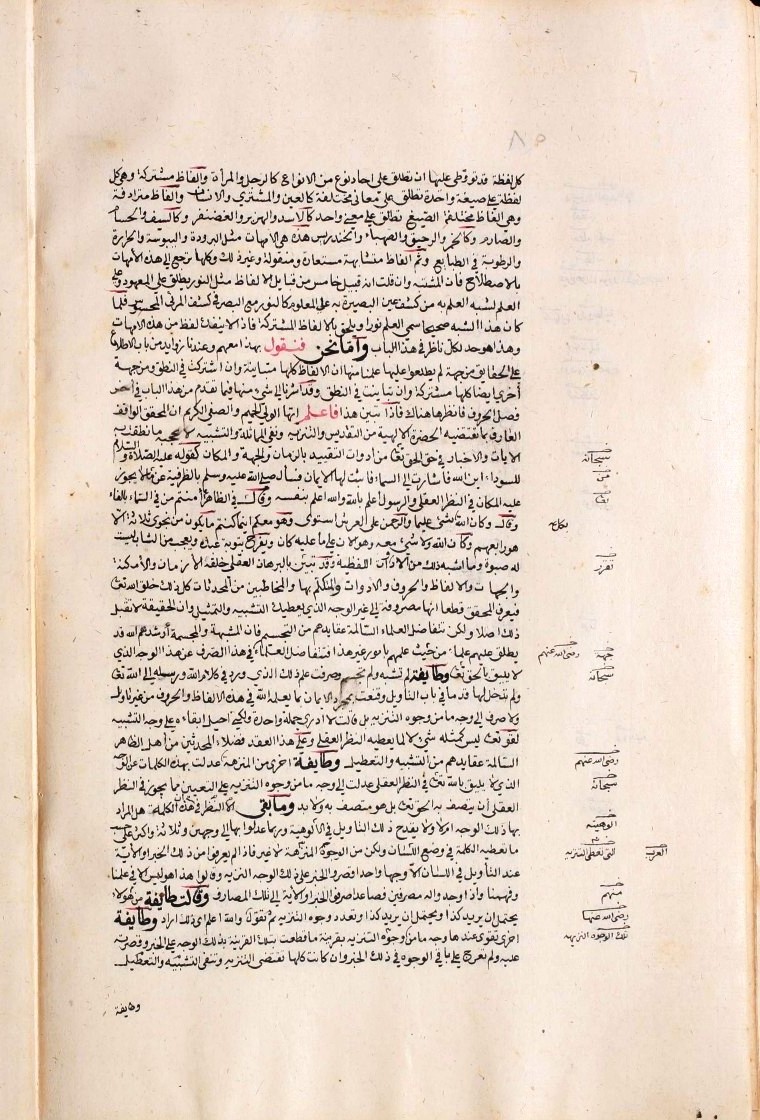 ٨٥
كل لفظة قد توطى عليها ان تطلق على احاد نوع من الانواع كالرجل والمرأة والفاظ مشتركة وهي كل
لفظة على صيغة واحدة تطلق على معاني مختلفة كالعين والمشتري والانسان والفاظ مترادفة
وهي الفاظ مختلفة الصيغ تطلق على معنى واحد كالاسد والهزبر والغضنفر وكالسيف والحسام
والصارم وكالخمر والرحيق والصهباء والخندريس هذه هي الامهات مثل البرودة واليبوسة والحرارة
والرطوبة في الطبايع وثم الفاظ متشابهة مستعارة ومنقولة وغير ذلك وكلها ترجع الى هذه الامهات
بالاصطلاح فان المشتبه وان قلت انه قبيل خامس من قبايل الالفاظ مثل النور يطلق على المعهود وعلى
العلم لشبه العلم به من كشف عين البصيرة به على المعلوم كالنور مع البصر في كشف المرئي المحسوس فلما
كان هذا الشبه صحيحا سمي العلم نورا ويلحق بالالفاظ المشتركة فاذا لا ينفك لفظ من هذه الامهات
وهذا هو حد لكل ناظر في هذا الباب وأما نحن فنقول بهذا معهم وعندنا زوايد من باب الاطلاع
على الحقايق من جهة لم يطلعوا عليها علمنا منها ان الالفاظ كلها متباينة وان اشتركت في النطق ومن جهة
أخرى ايضا كلها مشتركة وان تباينت في النطق وقد اشرنا الى شيء منها فيما تقدم من هذا الباب في اخر
فصل الحروف فانظرها هناك فاذا تبين هذا فاعلم ايها الولي الحميم والصفي الكريم ان المحقق الواقف
العارف بما تقتضيه الحضرة الالهية من التقديس والتنزيه ونفي المماثلة والتشبيه لا يحجبه ما نطقت به
الايات والاخبار في حق الحق تعالى من ادوات التقييد بالزمان والجهة والمكان كقوله عليه الصلاة والسلام
للسوداء اين الله فاشارت الى السماء فاثبت لها الايمان فسأل صلى الله عليه وسلم بالظرفية عمن لا يجوز
عليه المكان في النظر العقلي والرسول اعلم بالله والله اعلم بنفسه وقال في الظاهر أأمنتم من في السماء بالفاء
وقال وكان الله بكل شيء عليما والرحمن على العرش استوى وهو معكم اينما كنتم ما يكون من نجوى ثلاثة الا
هو رابعهم وكان الله ولا شيء معه وهو الان على ما عليه كان ويفرح بتوبة عبده ويعجب من الشاب ليست
له صبوة وما اشبه ذلك من الادوات اللفظية وقد تبين بالبرهان العقلي خلقه الازمان والامكنة
والجهات والالفاظ والحروف والادوات والمتكلم بها والمخاطبين من المحدثات كل ذلك خلق الله تعالى
فيعرف المحقق قطعا انها مصروفة الى غير الوجه الذي يعطيك التشبيه والتمثيل وان الحقيقة لا تقبل
ذلك اصلا ولكن تتفاضل العلماء السالمة عقايدهم من التجسيم فان المشبهة والمجسمة أرشدهم الله قد
يطلق عليهم علماء من حيث علمهم بامور غير هذا فتتفاضل العلماء في هذا الصرف عن هذا الوجه الذي
لا يليق بالحق تعالى وطايفة لم تشبه ولم تجسم وصرفت علم ذلك الذي ورد في كلام الله ورسله الى الله تعالى
ولم تدخل لها قدما في باب التاويل وقنعت بمجرد الايمان بما يعلمه الله في هذه الالفاظ والحروف من غير تاويل
ولا صرف الى وجه ما من وجوه التنزيه بل قالت لا ادري جملة واحدة ولكني احيل ابقاءه على وجه التشبيه
لقوله تعالى ليس كمثله شيء لا لما يعطيه النظر العقلي وعلى هذا العقد فضلاء المحدثين من أهل الظاهر
السالمة عقايدهم من التشبيه والتعطيل وطايفة اخرى من المنزهة عدلت بهذه الكلمات عن الوجه
الذي لا يليق بالله تعالى في النظر العقلي عدلت الى وجه ما من وجوه التنزيه على التعيين مما يجوز في النظر
العقلي أن يتصف به الحق تعالى بل هو متصف به ولا بد وما بقي الا النظر في هذه الكلمة هل المراد
بها ذلك الوجه ام لا ولا يقدح ذلك التاويل في الالوهية وربما عدلوا بها الى وجهين وثلاثة واكثر على حسب
ما تعطيه الكلمة في وضع اللسان ولكن من الوجوه المنزهة لا غير فاذا لم يعرفوا من ذلك الخبر او الآية
عند التاويل في اللسان الا وجها واحدا قصروا الخبر على ذلك الوجه التنزيه وقالوا هذا هو ليس الا في علمنا
وفهمنا واذا وجدوا له مصرفين فصاعدا صرفوا الخبر او الاية الى تلك المصارف وقالت طايفة من هولاء
يحتمل ان يريد كذا ويحتمل ان يريد كذا وتعدد وجوه التنزيه ثم تقول والله اعلم اي ذلك اراد وطايفة
اخرى تقوى عندها وجه ما من وجوه التنزيه بقرينة ما قطعت بتلك القرينة بذلك الوجه على الخبر وقصرته
عليه ولم تعرج على باقي الوجوه في ذلك الخبر وان كانت كلها تقتضي التنزيه وتنفي التشبيه والتعطيل
وطايفة
سبحانه
بكل
تقرر
رضي الله عنهم
سبحانه
رضي الله عنهم
سبحانه
الوهيته
العرب
التي تعطى التنزيه
منهم
رضي الله عنها
تلك الوجوه التنزيهه